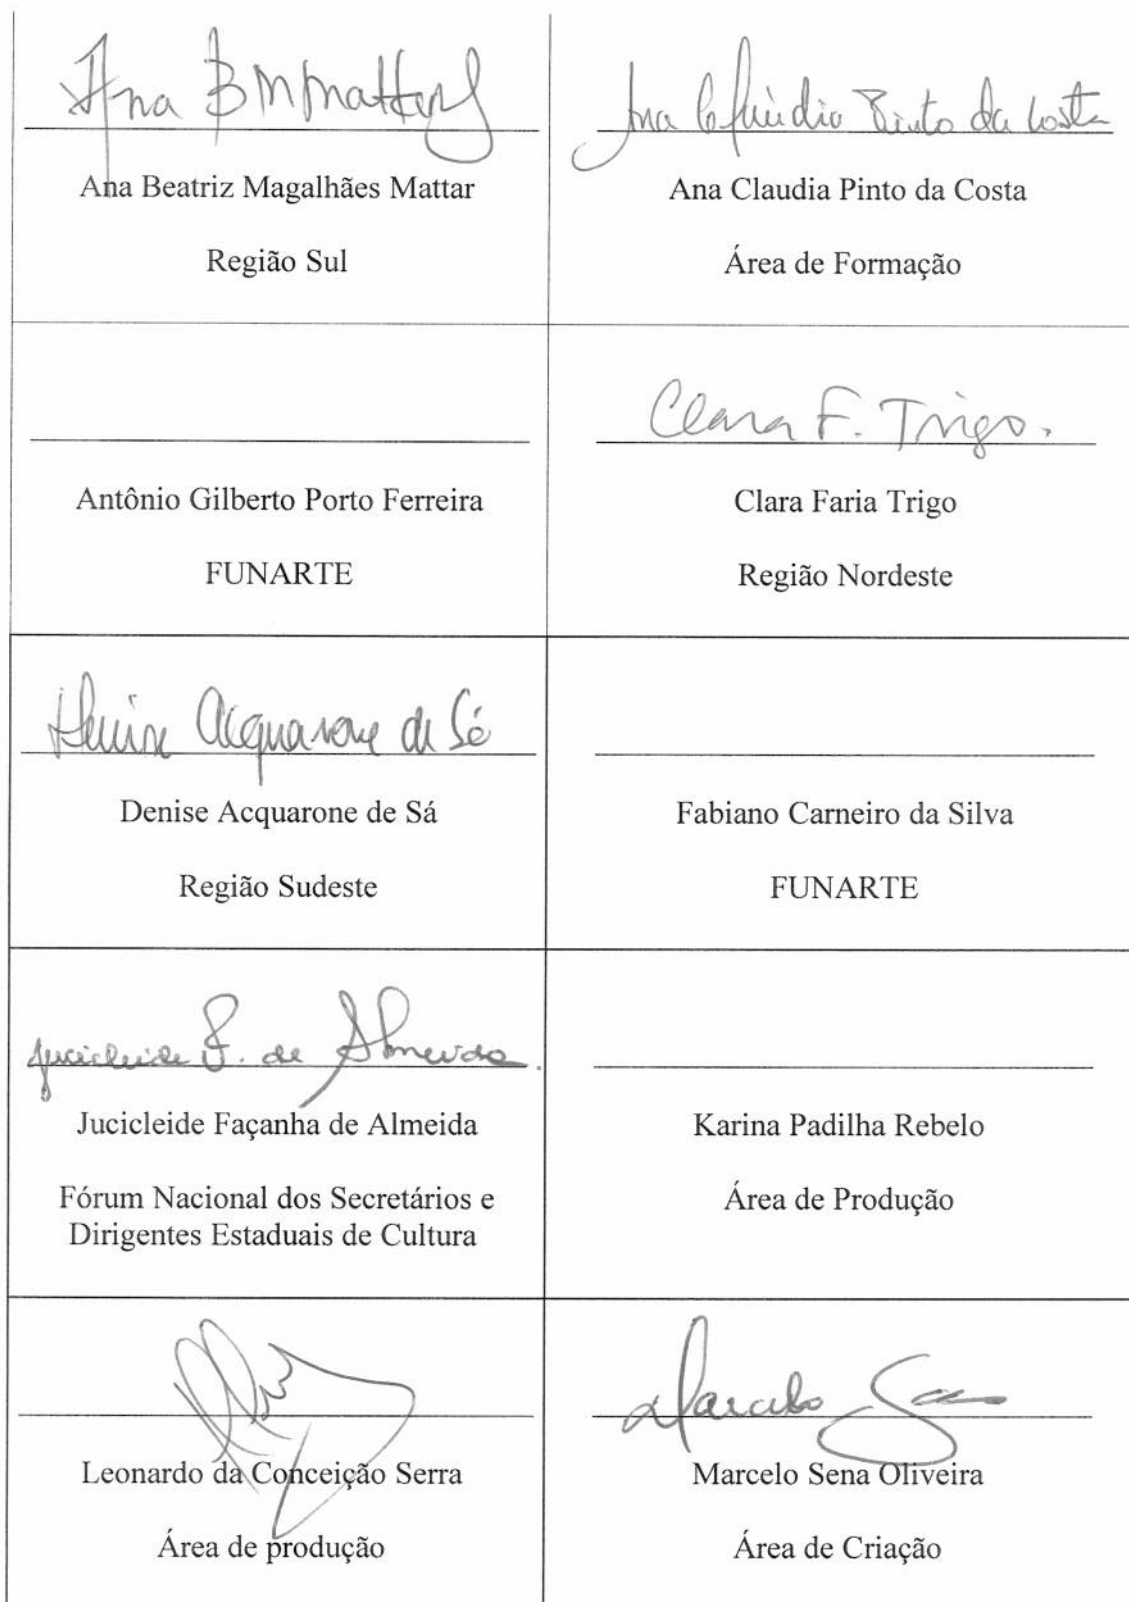 Ana B M Mattar
Ana Beatriz Magalhães Mattar
Região Sul
Ana Cláudia Pinto da Costa
Ana Claudia Pinto da Costa
Área de Formação
Antônio Gilberto Porto Ferreira
FUNARTE
Clara F. Trigo.
Clara Faria Trigo
Região Nordeste
Denise Acquarone de Sá
Denise Acquarone de Sá
Região Sudeste
Fabiano Carneiro da Silva
FUNARTE
Jucicleide F. de Almeida.
Jucicleide Façanha de Almeida
Fórum Nacional dos Secretários e
Dirigentes Estaduais de Cultura
Karina Padilha Rebelo
Área de Produção
Leonardo da Conceição Serra
Área de produção
Marcelo Sena
Marcelo Sena Oliveira
Área de Criação